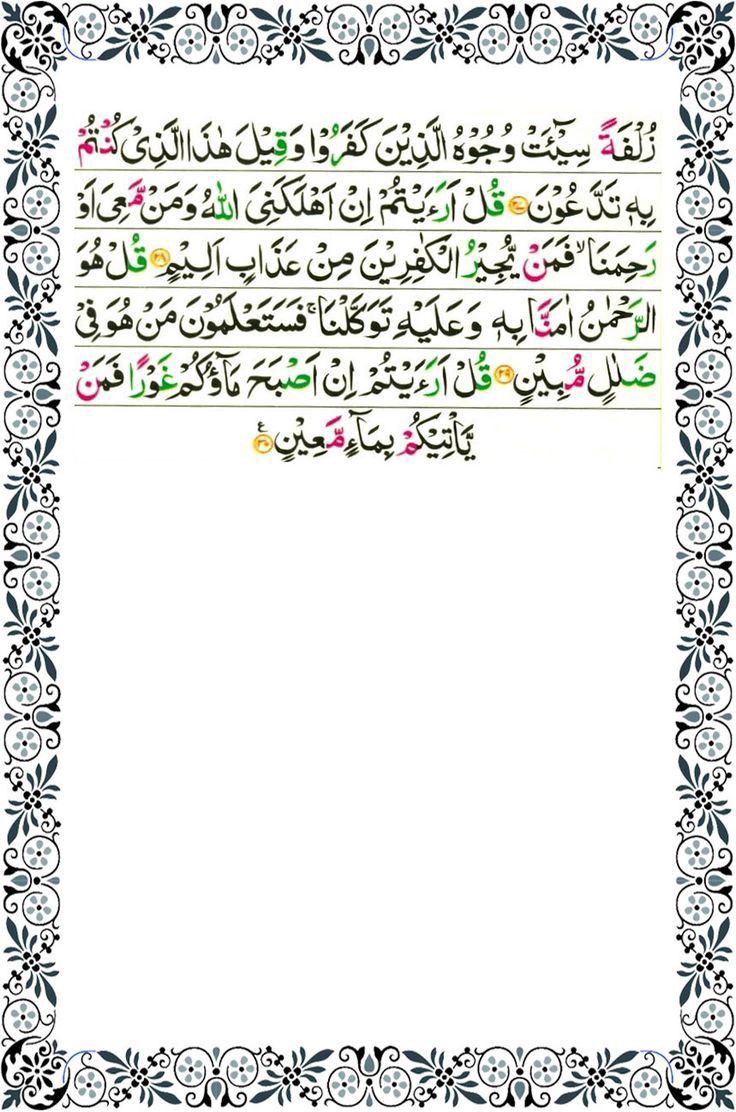 زُلْفَةً سِیْٓـَٔتْ وُجُوْهُ الَّذِیْنَ كَفَرُوْا وَ قِیْلَ هٰذَا الَّذِیْ كُنْتُمْ
بِهٖ تَدَّعُوْنَ ۝۲۷ قُلْ اَرَءَیْتُمْ اِنْ اَهْلَكَنِیَ اللّٰهُ وَ مَنْ مَّعِیَ اَوْ
رَحِمَنَا ۙ فَمَنْ یُّجِیْرُ الْكٰفِرِیْنَ مِنْ عَذَابٍ اَلِیْمٍ ۝۲۸ قُلْ هُوَ
الرَّحْمٰنُ اٰمَنَّا بِهٖ وَ عَلَیْهِ تَوَكَّلْنَا ۚ فَسَتَعْلَمُوْنَ مَنْ هُوَ فِیْ
ضَلٰلٍ مُّبِیْنٍ ۝۲۹ قُلْ اَرَءَیْتُمْ اِنْ اَصْبَحَ مَآؤُكُمْ غَوْرًا فَمَنْ
یَّاْتِیْكُمْ بِمَآءٍ مَّعِیْنٍ ۝۳۰ ع